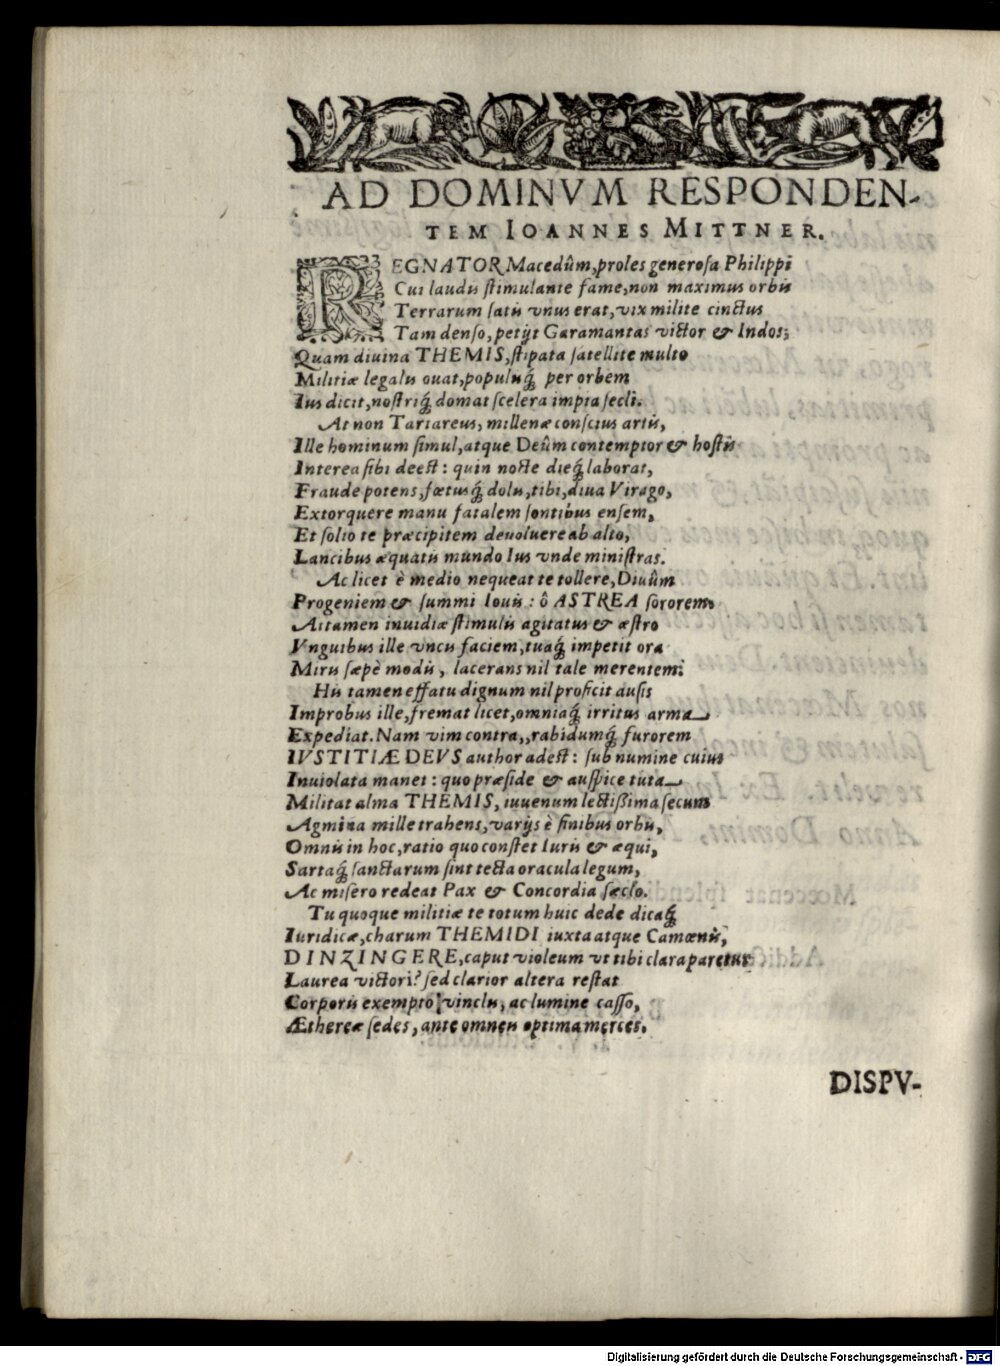 AD DOMINVM RESPONDEN-
TEM IOANNES MITTNER.
REGNATOR Macedûm, proles generosa Philippi
Cui laudis stimulante fame, non maximus orbis
Terrarum satis vnus erat, vix milite cinctus
Tam denso, petijt Garamantas victor & Indos;
Quam diuina THEMIS, stipata satellite multo
Militiæ legalis ouat, populisq́ per orbem
Ius dicit, nostriq́ domat scelera impia secli.
At non Tartareus, millenæ conscius artis,
Ille hominum simul, atque Deûm contemptor & hostis
Interea sibi deest: quin nocte dieq́ laborat,
Fraude potens, fœtusq́ dolis, tibi, diua Virago,
Extorquere manu fatalem sontibus ensem,
Et solio te præcipitem deuoluere ab alto,
Lancibus æquatis mundo Ius vnde ministras.
Ac licet è medio nequeat te tollere, Diuûm
Progeniem & summi Iouis: ô ASTREA sororem
Attamen inuidiæ stimulis agitatus & æstro
Vnguibus ille vncis faciem, tuaq́ impetit ora
Miris sæpè modis, lacerans nil tale merentem:
His tamen effatu dignum nil proficit ausis
Improbus ille, fremat licet, omniaq́ irritus arma
Expediat. Nam vim contra,, rabidumq́ furorem
IVSTITIÆ DEVS author adest: sub numine cuius
Inuiolata manet: quo præside & auspice tuta
Militat alma THEMIS, iuuenum lectißima secum
Agmina mille trahens, varijs è finibus orbis,
Omnis in hoc, ratio quo constet Iuris & æqui,
Sartaq́ sanctarum sint tecta oracula legum,
Ac misero redeat Pax & Concordia sæclo.
Tu quoque militiæ te totum huic dede dicaq́
Iuridicæ, charum THEMIDI iuxta atque Camœnis,
DINZINGERE, caput violeum vt tibi clara paretur
Laurea victori? sed clarior altera restat
Corporis exempto vinclis, ac lumine casso,
Æthereæ sedes, ante omneis optima merces.
DISPV-
Digitalisierung gefördert durch die Deutsche Forschungsgemeinschaft - DFG